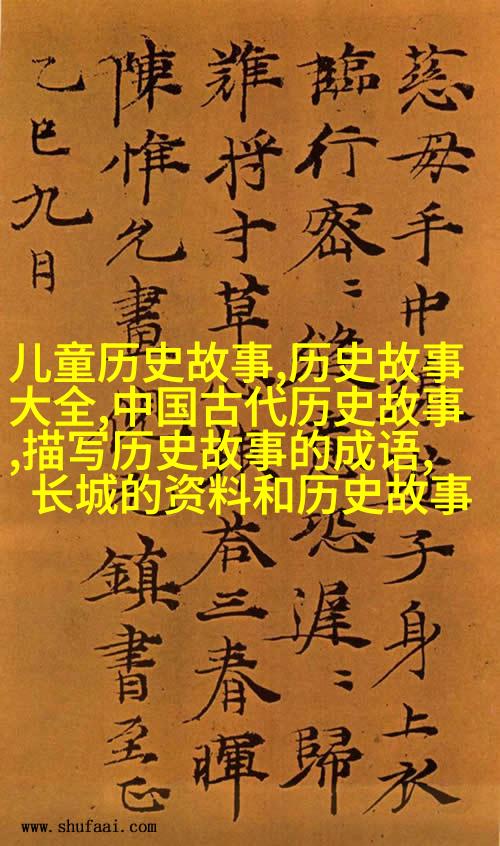 慈母手中子身上衣
臨行密〻縫恐遲〻歸
難将寸草荅三春暉
陳惟允畫鎮書至正
乙巳九月
儿童历史故事,历史故事
大全,中国古代历史故事
,描写历史故事的成语,
长城的资料和历史故事
www.shufaai.com